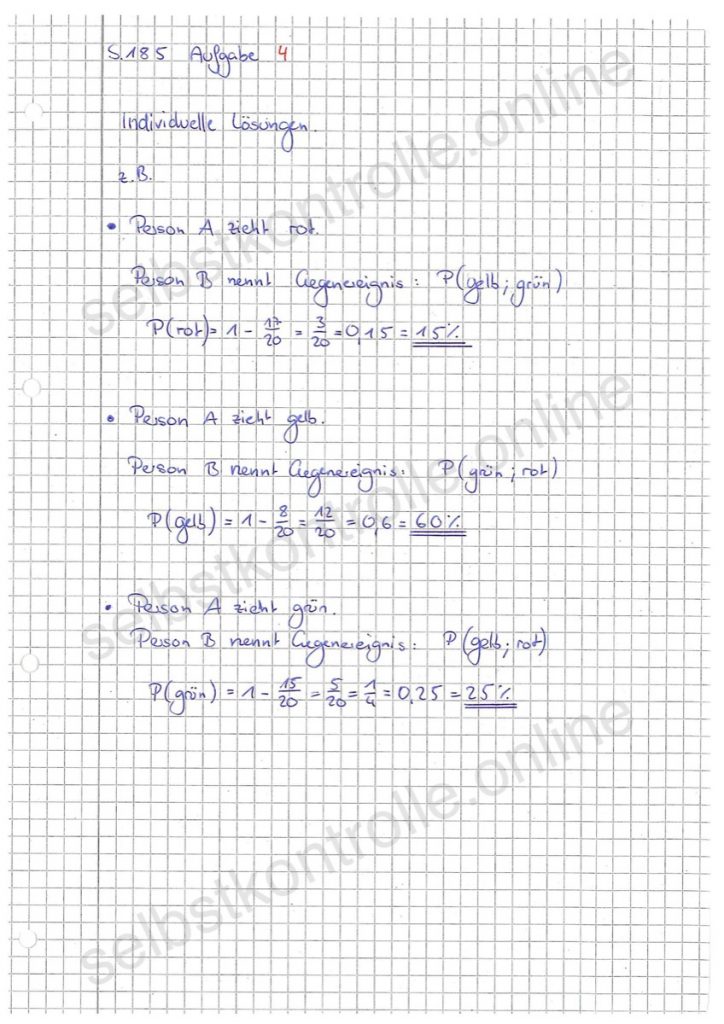 S.185 Aufgabe 4
Individuelle Lösungen.
z.B.
• Person A zieht rot.
Person B nennt Gegenereignis: P(gelb; grün)
P(rot) = 1 - 17/20 = 3/20 = 0,15 = 15%
• Person A zieht gelb.
Person B nennt Gegenereignis: P(grün; rot)
P(gelb) = 1 - 8/20 = 12/20 = 0,6 = 60%
• Person A zieht grün.
Person B nennt Gegenereignis: P(gelb; rot)
P(grün) = 1 - 15/20 = 5/20 = 1/4 = 0,25 = 25%
selbstkontrolle.online
selbstkontrolle.online
selbstkontrolle.online